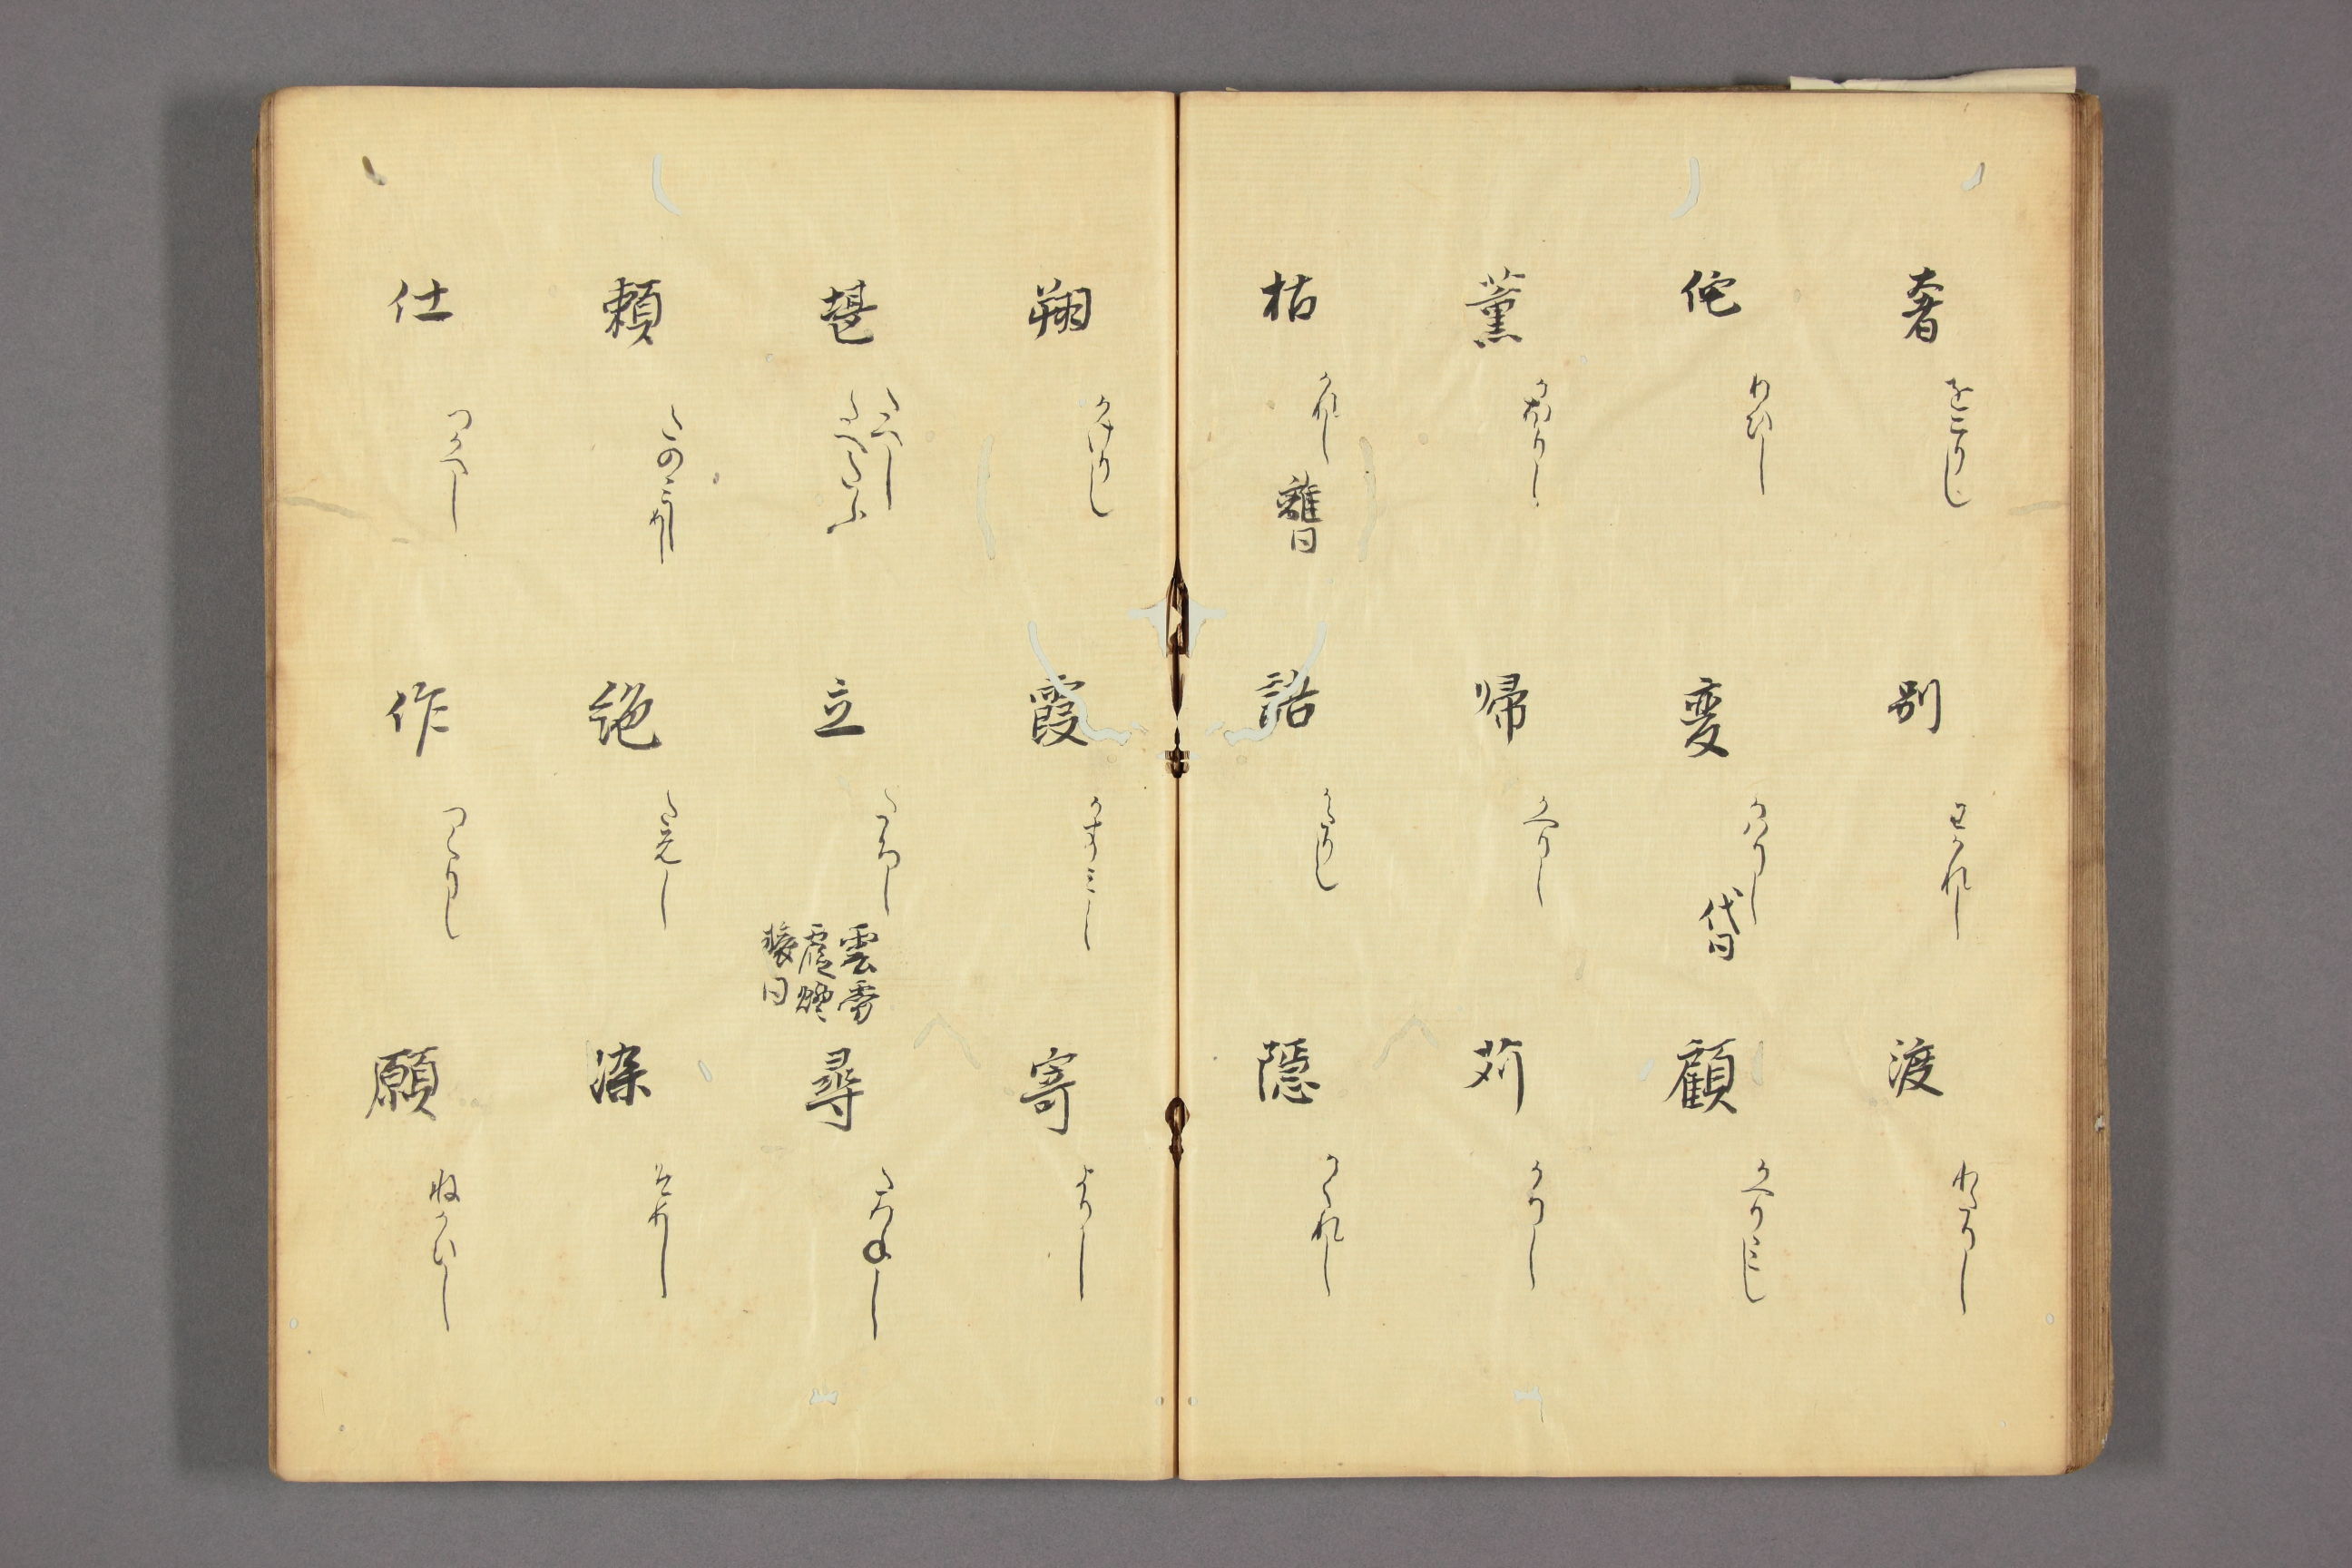 奢 をこりし
別 わかれし
渡 わたりし
侘 わひし
変 かハりし 代同
顧 かへりミし
薫 かほりし
帰 かへりし
苅 かりし
枯 かれし 離同
語 かたりし
隠 かくれし
翔 かけりし
霞 かすミし
寄 よりし
堪 たへし
立 たちし
雲雪
同
尋 たつねし
頼 たのミし
絶 たえし
染 そめし
仕 つかへし
作 つくりし
願 ねかひし